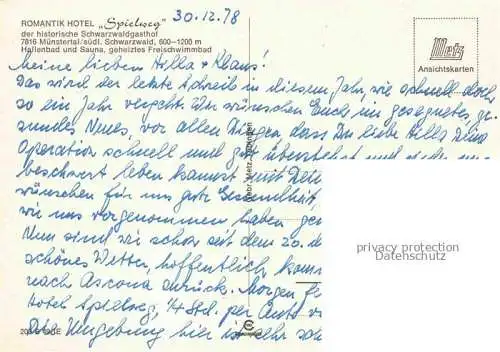 30.12.78
ROMANTIK HOTEL „Spielweg"
der historische Schwarzwaldgasthof
7816 Münstertal/südl. Schwarzwald, 600–1200 m
Hallenbad und Sauna, geheiztes Freischwimmbad
Metz
Ansichtskarten
Meine lieben Hilla + Klaus!
Das wird der letzte Schreib in diesem Jahr, wie schnell doch
so ein Jahr vergeht. Wir wünschen Euch ein gesegnetes, ge-
sundes Neues, vor allen Dingen dass Du liebe Hilla Deine
Operation schnell und gut überstehst und
beschwert leben kannst mit
wünschen für uns gute Gesundheit,
wir uns vorgenommen haben
Nun sind wir schon seit dem 20.
schönes Wetter, hoffentlich,
nach Ascona zurück. Morgen
Hotel Spielweg, 1/4 Std. per Auto
Die Umgebung hier ist sehr
Gebr. Metz, Tübingen
privacy protection
Datenschutz